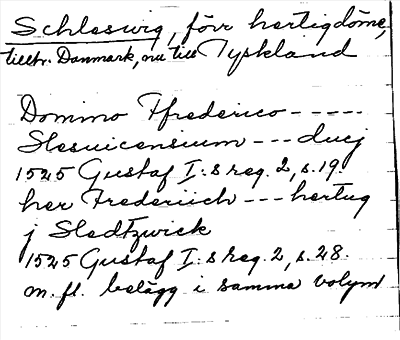 Schleswig, förr hertigdöme,
tillhr. Danmark, nu till Tyskland
Domino Ffrederico -----
Slesuicensium --- ducj
1525 Gustaf I:s reg. 2, s. 19.
her Frederiich --- hertug
j Sledtzwick
1525 Gustaf I:s reg. 2, s. 28.
m. fl. belägg i samma volym